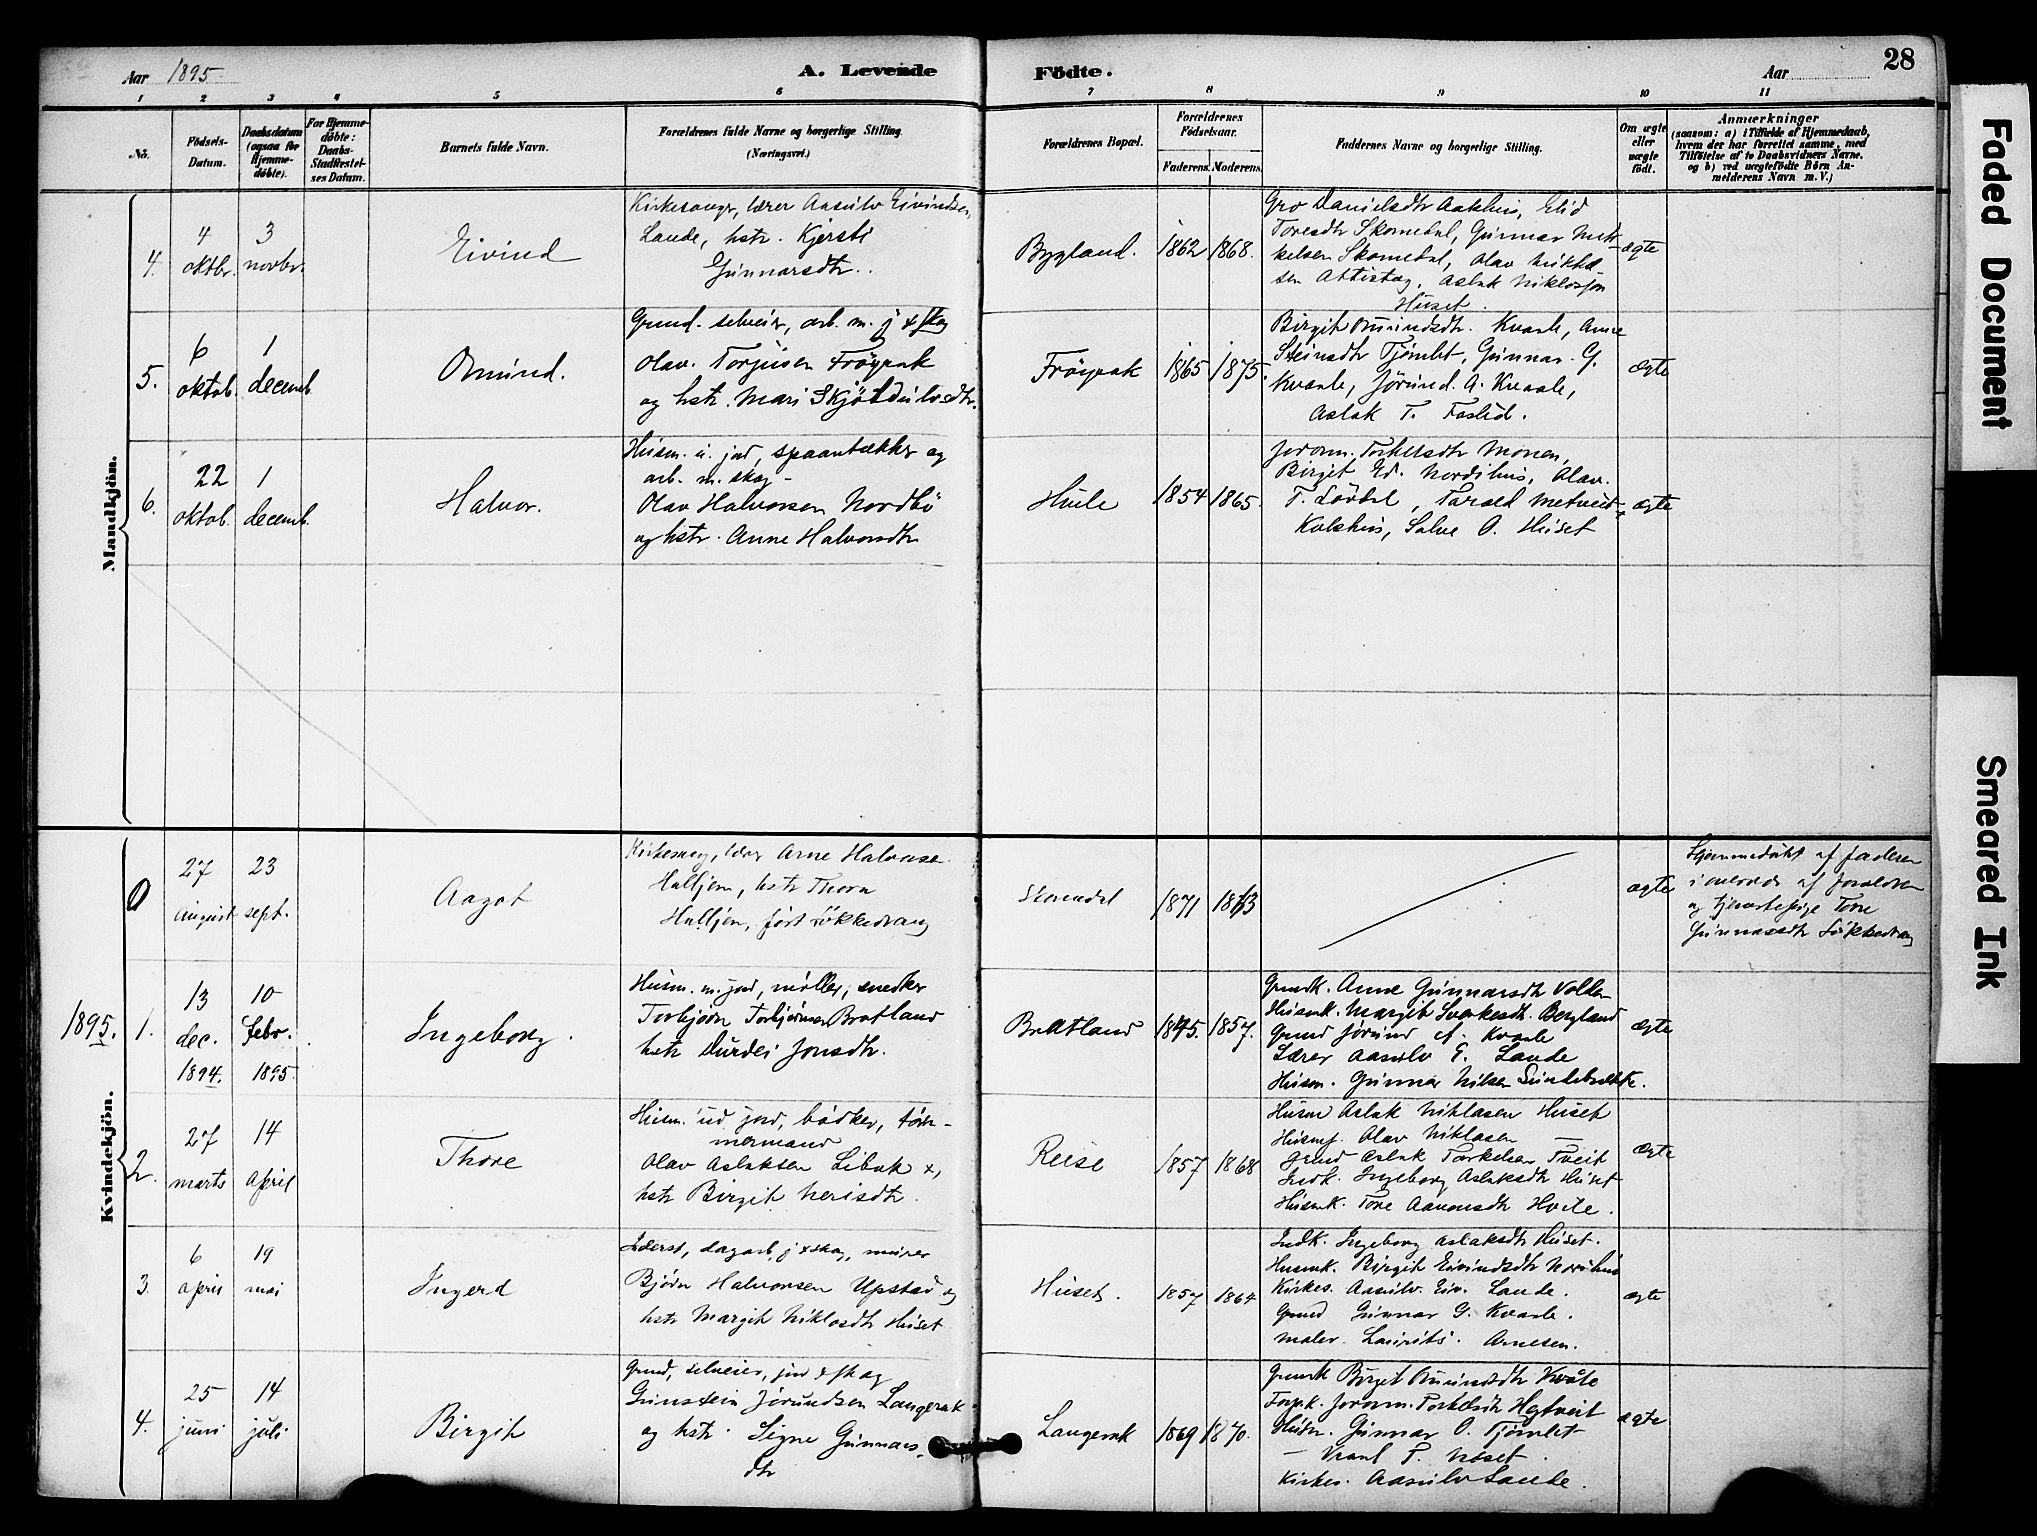 Aar 1895.
A. Levende Födte.
Aar
28
1 2 3 4 5 6 7 8 9 10 11
No.
Födsels-Datum.
Daabsdatum (ogsaa for Hjemme-döbte).
For Hjemme-döbte: Daabs-Stadfestel-ses Datum.
Barnets fulde Navn.
Forældrenes fulde Navne og borgerlige Stilling.
(Næringsvei.)
Forældrenes Bopæl.
Forældrenes Födselsaar.
Faderens. Moderens.
Faddernes Navne og borgerlige Stilling.
Om ægte eller uægte födt.
Anmærkninger
(saasom: a) i Tilfælde af Hjemmedaab, hvem der har forrettet samme, med Tilföielse af to Daabsvidners Navne. og b) ved uægtefödte Börn An-melderens Navn m. V.)
Mandkjön.
4.
4 oktbr.
3 novbr.
Eivind
Kirkesanger, lærer Aasulv Eivindsen
Lande, hstr. Kjersti
Gunnarsdtr.
Bygland.
1862 1868.
Gro Danielsdtr Aakhus, Elid
Toresdtr Skomedal, Gunnar
Skomedal, Olav
Aslak Niklosson
Huset.
ægte
5.
6 oktob.
1 decemb
Omund.
Grund. selveier, arb. m. j + skog
Olav Torjusen Fröyrak
og hstr. Mari Skjöldulvsdtr.
Fröyrak
1865 1875.
Birgit Omundsdtr. Kvaale, Anne
Steinsdtr Tjömlet, Gunnar G.
Kvaale, Jörund A. Kvaale,
Aslak T. Faslid.
ægte
6.
22 oktob.
1 decemb.
Halvor.
Husm. u. jord, spaantækker og
arb. m. skog -
Olav Halvorsen Nordbö
og hstr. Anne Halvorsdtr
Huile
1854 1865.
Jorann Torkelsdtr Monen,
Birgit Ed. Nordihus, Olav
T. Lövdal, Tarald
Kvalshus, Salve O. Huset
ægte
1895.
Kvindekjön.
0
27 august
23 sept.
Aagot
Kirkesang, lærer Arne Halvorsen
Halljem, hstr Thora
Halljem, födt Lökkedrang
Skomedal
1871 1863
ægte
Hjemmedöbt af faderen
i overvær af forældren
og tjenestepige Tore
Gunnarsdtr Lökkedrang
1.
13 dec. 1894.
10 febr. 1895
Ingeborg.
Husm. m. jord, möller, snedker
Torbjörn Torbjörnsen Bratland
hstr Durdei Jonsdtr.
Bratland
1845. 1857.
Grundk. Anne Gunnarsdtr Vollen
Husmk. Margit Sverkesdtr. Bergland
Grund Jörund A. Kvaale
Lærer Aasulv E. Lande
Husm. Gunnar Nilsen Sundebrække.
ægte
2.
27 marts
14 april
Thore
Husm. ud jord, bödker, töm-
mermand
Olav Aslaksen Libak +,
hstr Birgit Nerisdtr.
Reise
1857 1868
Husm Aslak Niklasen Huset
Husmf. Olav Niklasen —
Grund Aslak Torkelsen Tveit
Indk. Ingeborg Aslaksdtr Huset
Husmk. Tore Aanonsdtr Hvile.
ægte
3.
6 april
19 mai
Ingerd
Inderst, dagarb. j + skog, murer
Björn Halvorsen Upstad og
hstr Margit Niklosdtr Huset
Huset.
1857 1864
Indk. Ingeborg Aslaksdtr Huset.
Husmk. Birgit Eivindsdtr Nordihus
Kirkes. Aasulv Eiv. Lande.
Grund Gunnar G. Kvaale.
maler Laurits Arnesen.
ægte
4.
25 juni
14 juli
Birgit
Grund, selveier, jord + skog
Gunstein Jörundsen Langerak
og hstr. Signe Gunnars-
dtr
Langerak
1869 1870.
Grundk Birgit Omundsdtr Kvåle
Forpk. Jorann Torkelsdtr Hegtveit
Husm. Gunnar O. Tjömlet
— P. Noset.
Kirkes. Aasulv Lande.
ægte
Faded Document
Smeared Ink